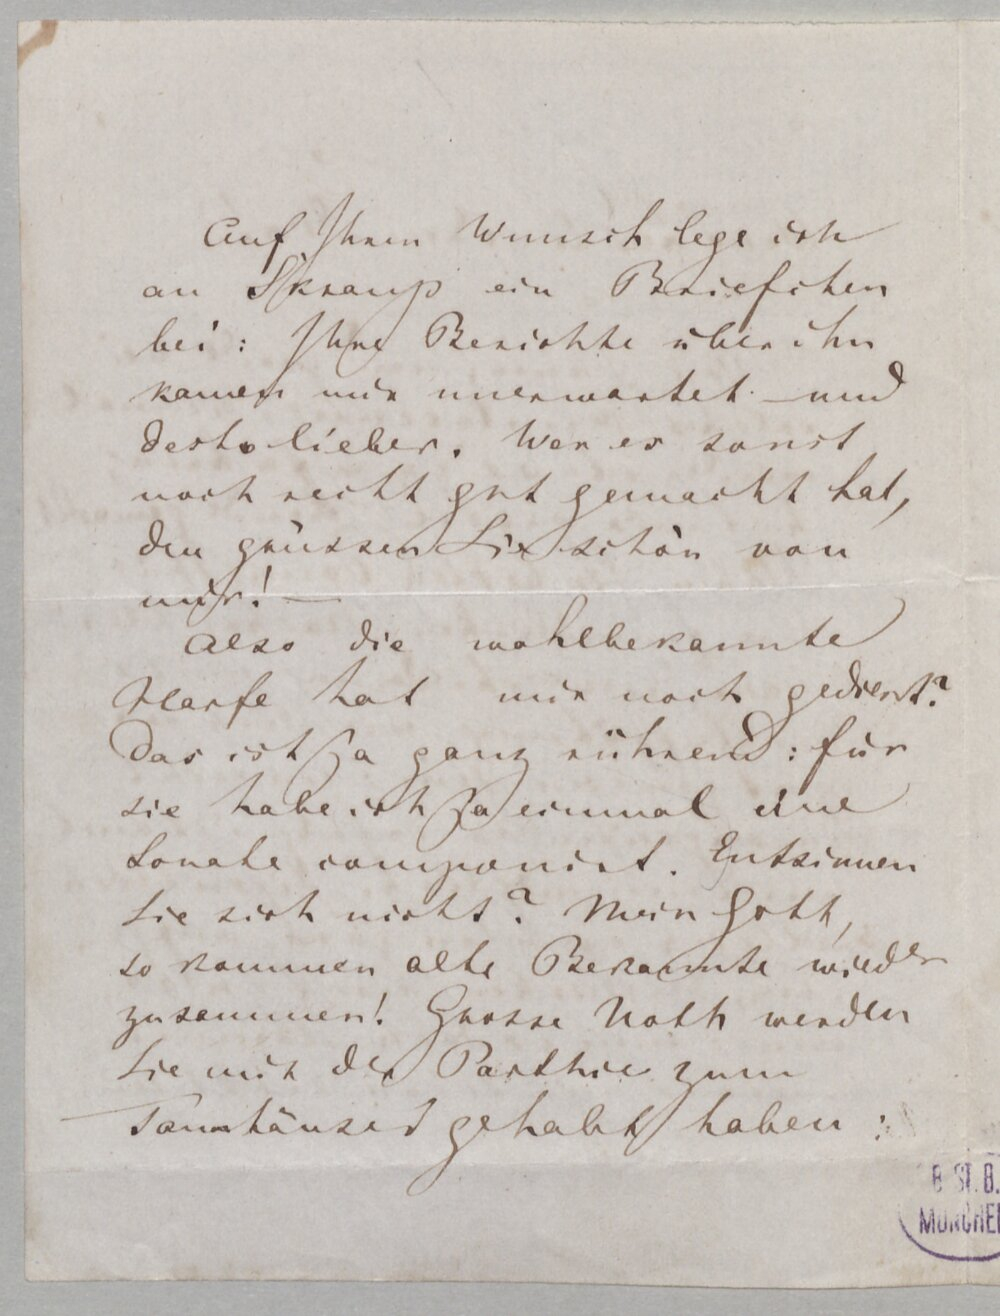 Auf Ihren Wunsch lege ich
an Skraup ein Briefchen
bei: Ihre Berichte über ihn
kamen mir unerwartet – und
desto lieber. Wer es sonst
noch recht gut gemacht hat,
den grüssen Sie schön von
mir! –
Also die wohlbekannte
Harfe hat mir noch gedient?
Das ist ja ganz rührend: für
sie habe ich ja einmal eine
Sonate componirt. Entsinnen
Sie sich nicht? Mein Gott,
so kommen alte Bekannte wieder
zusammen! Grosse Noth werden
Sie mit der Parthie zum
Tannhäuser gehabt haben:
B. ST. B.
MÜNCHEN